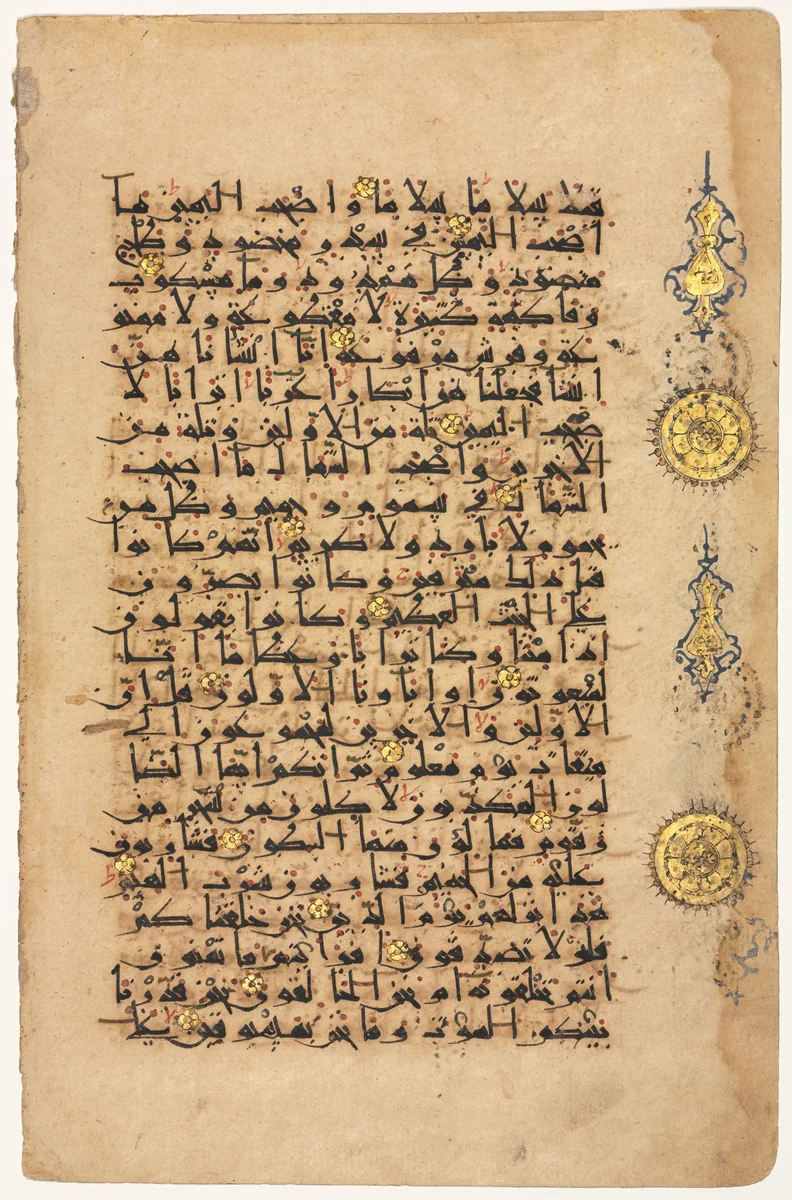 قيلا سلاما سلاما واصحب اليمين ما
اصحب اليمين في سدر مخضود وطلح
منضود وظل ممدود وما مسكوب
وفاكهة كثيرة لا مقطوعة ولا ممنو
عة وفرش مرفوعة انا انشانا هن
انشا فجعلنهن ابكارا عربا اترابا لا
صحب اليمين ثلة من الاولين وثلة من
الاخرين واصحب الشمال ما اصحب
الشمال في سموم وحميم وظل من
يحموم لا بارد ولا كريم انهم كانوا
قبل ذلك مترفين وكانوا يصرون
على الحنث العظيم وكانوا يقولون
اذا متنا وكنا ترابا وعظاما انا
لمبعوثون او اباونا الاولون قل ان
الاولين والاخرين لمجموعون الى
ميقات يوم معلوم ثم انكم ايها الضا
لون المكذبون لاكلون من شجر من
زقوم فمالون منها البطون فشاربون
عليه من الحميم فشاربون شرب الهيم
هذا نزلهم يوم الدين نحن خلقناكم
فلولا تصدقون افرايتم ما تمنون
انتم تخلقونه ام نحن الخالقون نحن قدرنا
بينكم الموت وما نحن بمسبوقين على